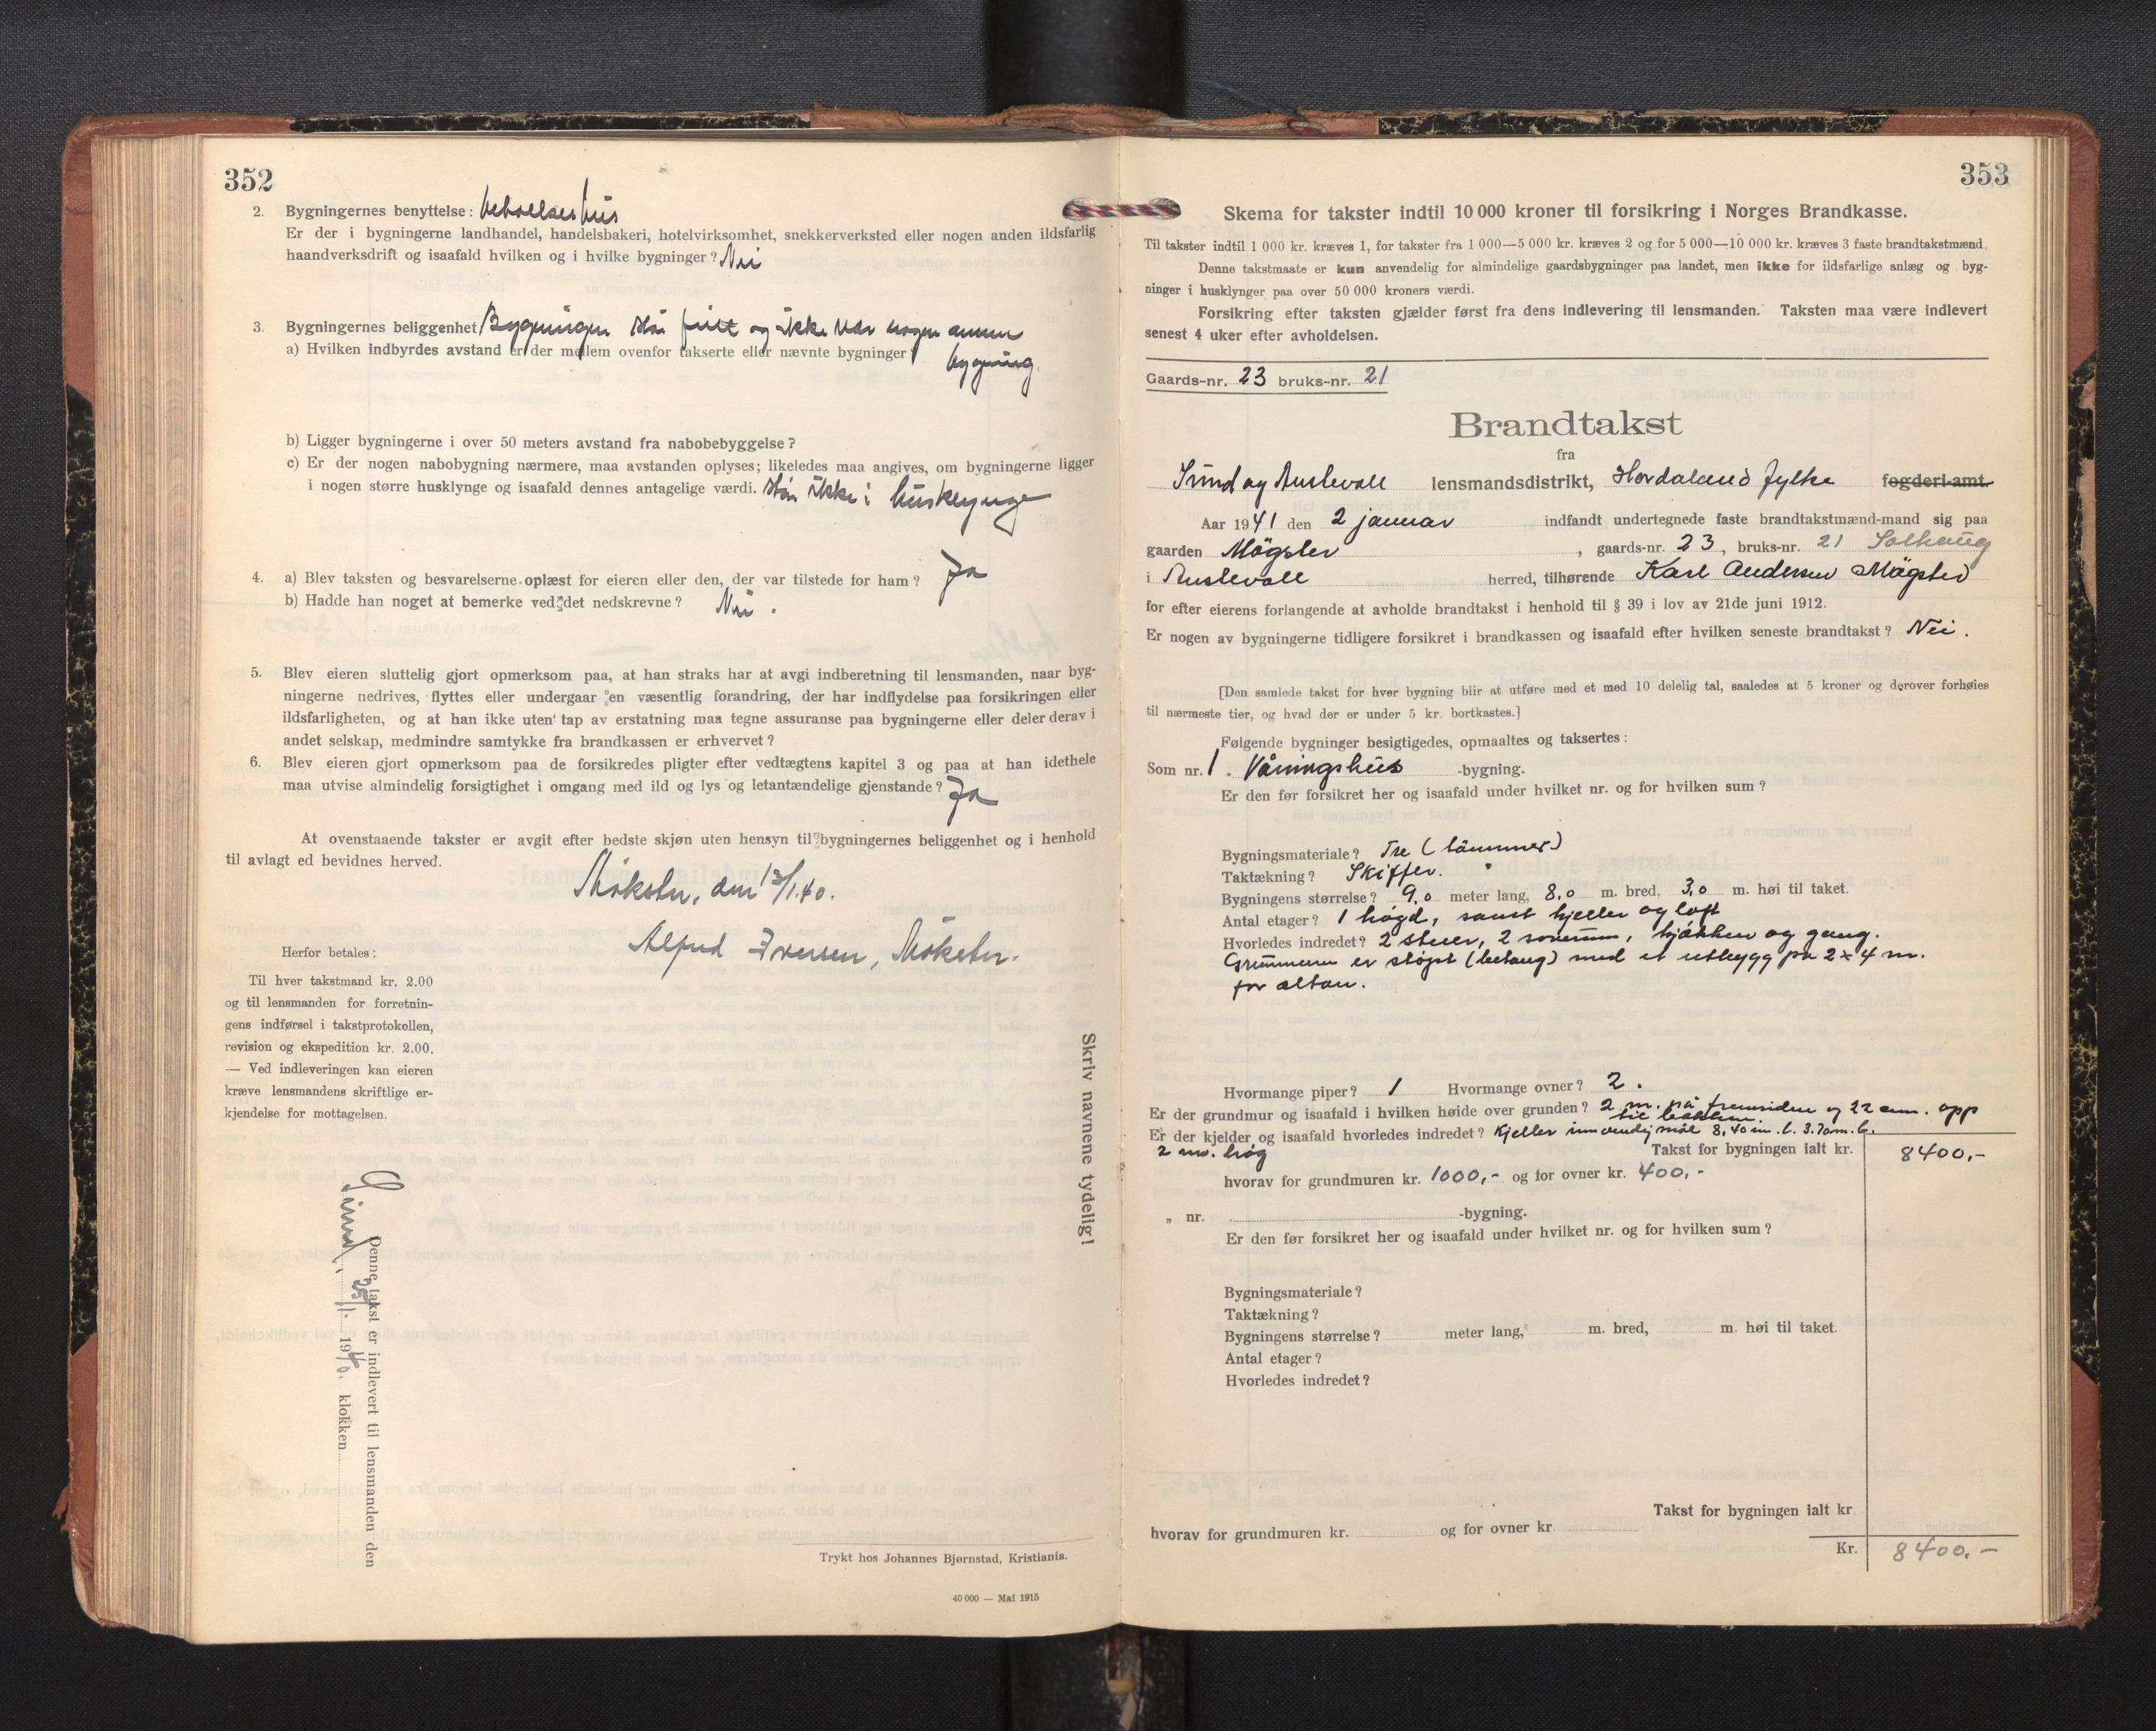 352
2. Bygningernes benyttelse: beboelseshus
Er der i bygningerne landhandel, handelsbakeri, hotelvirksomhet, snekkerverksted eller nogen anden ildsfarlig
haandverksdrift og isaafald hvilken og i hvilke bygninger? Nei
3. Bygningernes beliggenhet Bygningen står fritt og ikke nær nogen annen
a) Hvilken indbyrdes avstand er der mellem ovenfor takserte eller nævnte bygninger?
bygning.
b) Ligger bygningerne i over 50 meters avstand fra nabobebyggelse?
c) Er der nogen nabobygning nærmere, maa avstanden oplyses; likeledes maa angives, om bygningerne ligger
i nogen større husklynge og isaafald dennes antagelige værdi. Står ikke i husklynge
4. a) Blev taksten og besvarelserne oplæst for eieren eller den, der var tilstede for ham? Ja
b) Hadde han noget at bemerke ved det nedskrevne? Nei.
5. Blev eieren sluttelig gjort opmerksom paa, at han straks har at avgi indberetning til lensmanden, naar byg-
ningerne nedrives, flyttes eller undergaar en væsentlig forandring, der har indflydelse paa forsikringen eller
ildsfarligheten, og at han ikke uten tap av erstatning maa tegne assuranse paa bygningerne eller deler derav i
andet selskap, medmindre samtykke fra brandkassen er erhvervet?
6. Blev eieren gjort opmerksom paa de forsikredes pligter efter vedtægtens kapitel 3 og paa at han idethele
maa utvise almindelig forsigtighet i omgang med ild og lys og letantændelige gjenstande? Ja
At ovenstaaende takster er avgit efter bedste skjøn uten hensyn til bygningernes beliggenhet og i henhold
til avlagt ed bevidnes herved.
Møkster, den 13/1.40.
Alfred Iversen, Møkster.
Herfor betales:
Til hver takstmand kr. 2.00
og til lensmanden for forretnin-
gens indførsel i takstprotokollen,
revision og ekspedition kr. 2.00.
— Ved indleveringen kan eieren
kræve lensmandens skriftlige er-
kjendelse for mottagelsen.
Skriv navnene tydelig!
Denne takst er indlevert til lensmanden den
Sund, 25/1. 1940. klokken
Trykt hos Johannes Bjørnstad, Kristiania.
40 000 — Mai 1915
353
Skema for takster indtil 10 000 kroner til forsikring i Norges Brandkasse.
Til takster indtil 1 000 kr. kræves 1, for takster fra 1 000—5 000 kr. kræves 2 og for 5 000—10 000 kr. kræves 3 faste brandtakstmænd.
Denne takstmaate er kun anvendelig for almindelige gaardsbygninger paa landet, men ikke for ildsfarlige anlæg og byg-
ninger i husklynger paa over 50 000 kroners værdi.
Forsikring efter taksten gjælder først fra dens indlevering til lensmanden. Taksten maa være indlevert
senest 4 uker efter avholdelsen.
Gaards-nr. 23 bruks-nr. 21
Brandtakst
fra
Sund og Austevoll lensmandsdistrikt, Hordaland fylke fogderi-amt
Aar 1941 den 2 januar indfandt undertegnede faste brandtakstmænd-mand sig paa
gaarden Møgster, gaards-nr. 23, bruks-nr. 21 Solhaug
i Austevoll herred, tilhørende Karl Andersen Møgster
for efter eierens forlangende at avholde brandtakst i henhold til § 39 i lov av 21de juni 1912.
Er nogen av bygningerne tidligere forsikret i brandkassen og isaafald efter hvilken seneste brandtakst? Nei.
[Den samlede takst for hver bygning blir at utføre med et med 10 delelig tal, saaledes at 5 kroner og derover forhøies
til nærmeste tier, og hvad der er under 5 kr. bortkastes.]
Følgende bygninger besigtigedes, opmaaltes og taksertes:
Som nr. 1. Våningshus -bygning.
Er den før forsikret her og isaafald under hvilket nr. og for hvilken sum?
Bygningsmateriale? Tre (tømmer)
Taktækning? Skiffer.
Bygningens størrelse? 9,0 meter lang, 8,0 m. bred, 3,0 m. høi til taket.
Antal etager? 1 høgd, samt kjeller og loft
Hvorledes indredet? 2 stuer, 2 soverum, kjøkken og gang.
Grunnmuren er støpt (betong) med et utbygg på 2 x 4 m.
for altan.
Hvormange piper? 1 Hvormange ovner? 2.
Er der grundmur og isaafald i hvilken høide over grunden? 2 m. på fremsiden og 22 cm. opp
til bakken
Er der kjelder og isaafald hvorledes indredet? Kjeller innvendig mål 8,40 m. l. 3.70 m. b.
2 m. høg
Takst for bygningen ialt kr. 8400,-
hvorav for grundmuren kr. 1000,- og for ovner kr. 400,-
„ nr. -bygning.
Er den før forsikret her og isaafald under hvilket nr. og for hvilken sum?
Bygningsmateriale?
Taktækning?
Bygningens størrelse? meter lang, m. bred, m. høi til taket.
Antal etager?
Hvorledes indredet?
Takst for bygningen ialt kr
hvorav for grundmuren kr. og for ovner kr
Kr. 8400.-